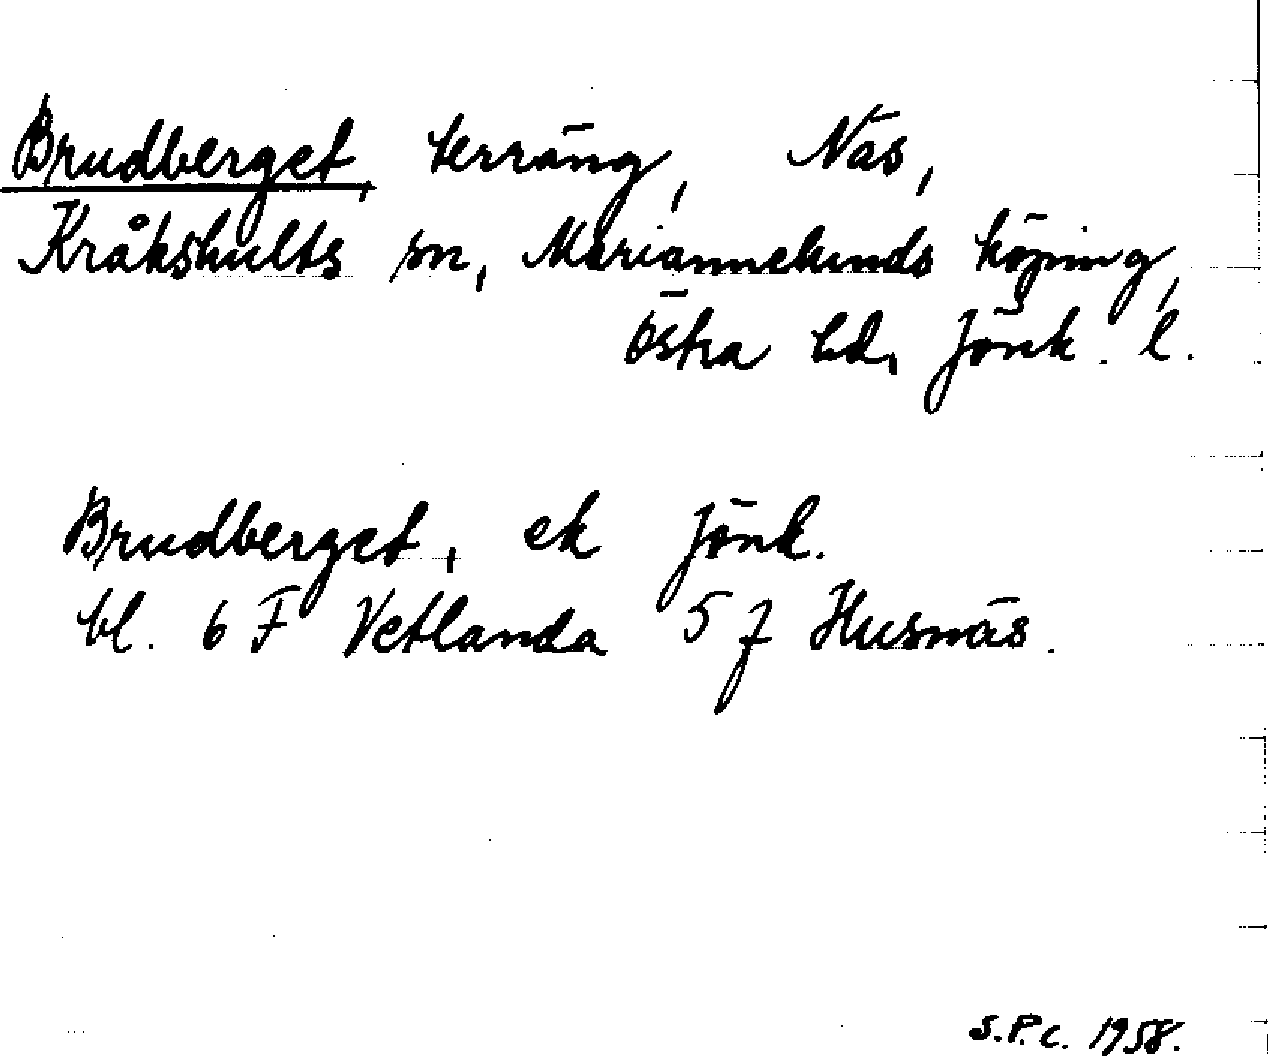 Brudberget, terräng, Näs,
Kråkshults sn, Mariannelunds köping,
östra hd, Jönk. l.
Brudberget, ek Jönk.
bl. 6 F Vetlanda 5 j Husnäs.
S.P.C. 1958.